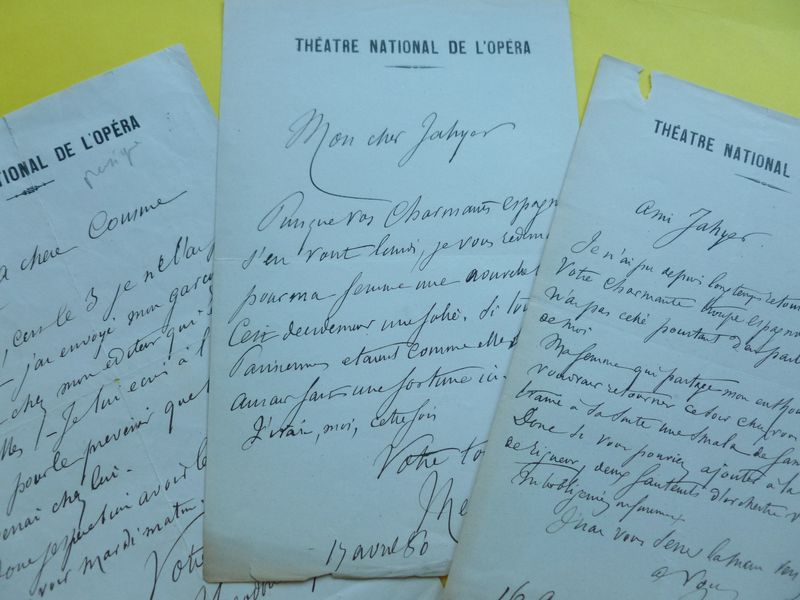 TIONAL DE L'OPÉRA
musique
a chere Cousine
c'est le 3 je ne l'ai
j'ai envoyé mon garço
chez mon editeur qui
Je lui ecris à l
pour le prevenir que
chez lui.
avoir le
voir mardi matin.
Votre
THÉATRE NATIONAL DE L'OPÉRA
Mon cher Jahyer
Puisque vos Charmants espagn
s'en vont lundi, je vous redem
pour ma femme une nouvelle
Ceci devient une folie. Si tou
Parisiennes etaient comme elle
aurai fait une fortune ici.
J'irai, moi, cette fois
Votre to
Me
17 avril 80
THÉATRE NATIONAL
Ami Jahyer.
Je n'ai pu depuis longtemps retour
Votre Charmante troupe espagno
n'a pas été pourtant d'en parl
de moi
Ma femme qui partage mon enthou
voudrait retourner ce soir chez vou
traine à sa suite une smala de fam
Donc si vous pouviez ajouter à la
de rigueur, deux fauteuils d'orchestre v
m'obligeriez
J'irai vous serrer la main
a vous
16 a